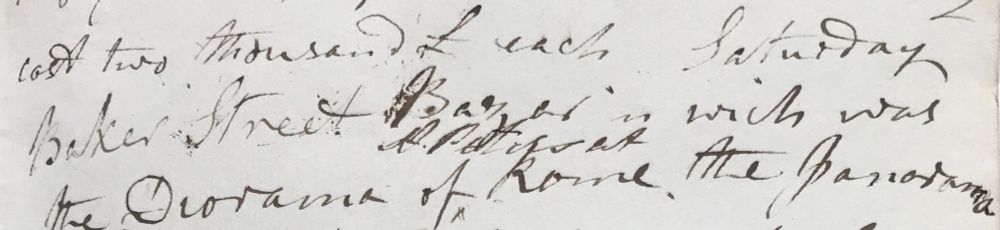 cost two thousand £ each Saturday
Baker Street Bazar in wich was
at
the Diorama of Rome. the Panorama